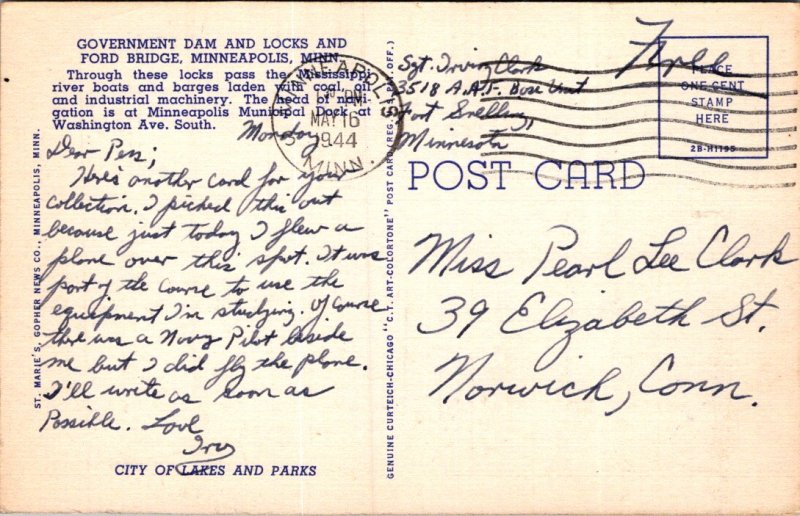 GOVERNMENT DAM AND LOCKS AND
FORD BRIDGE, MINNEAPOLIS, MINN.
Through these locks pass the Mississippi
river boats and barges laden with coal, oil
and industrial machinery. The head of navi-
gation is at Minneapolis Municipal Dock at
Washington Ave. South.
Monday
Dear Pem;
Here's another card for your
collection. I picked this out
because just today I flew a
plane over this spot. It was
part of the course to use the
equipment I'm studying. Of course
there was a Navy Pilot beside
me but I did fly the plane.
I'll write as soon as
Possible. Love
Irv
CITY OF LAKES AND PARKS
ST. MARIE'S, GOPHER NEWS CO., MINNEAPOLIS, MINN.
GENUINE CURTEICH-CHICAGO "C.T. ART-COLORTONE" POST CARD (REG. U.S. PAT. OFF.)
MINNEAPOLIS
PM
MAY 16
1944
MINN.
Sgt. Irving Clark
3518 A.A.F. Base Unit
Fort Snelling,
Minnesota
Free
PLACE
ONE CENT
STAMP
HERE
2B-H1195
POST CARD
Miss Pearl Lee Clark
39 Elizabeth St.
Norwich, Conn.